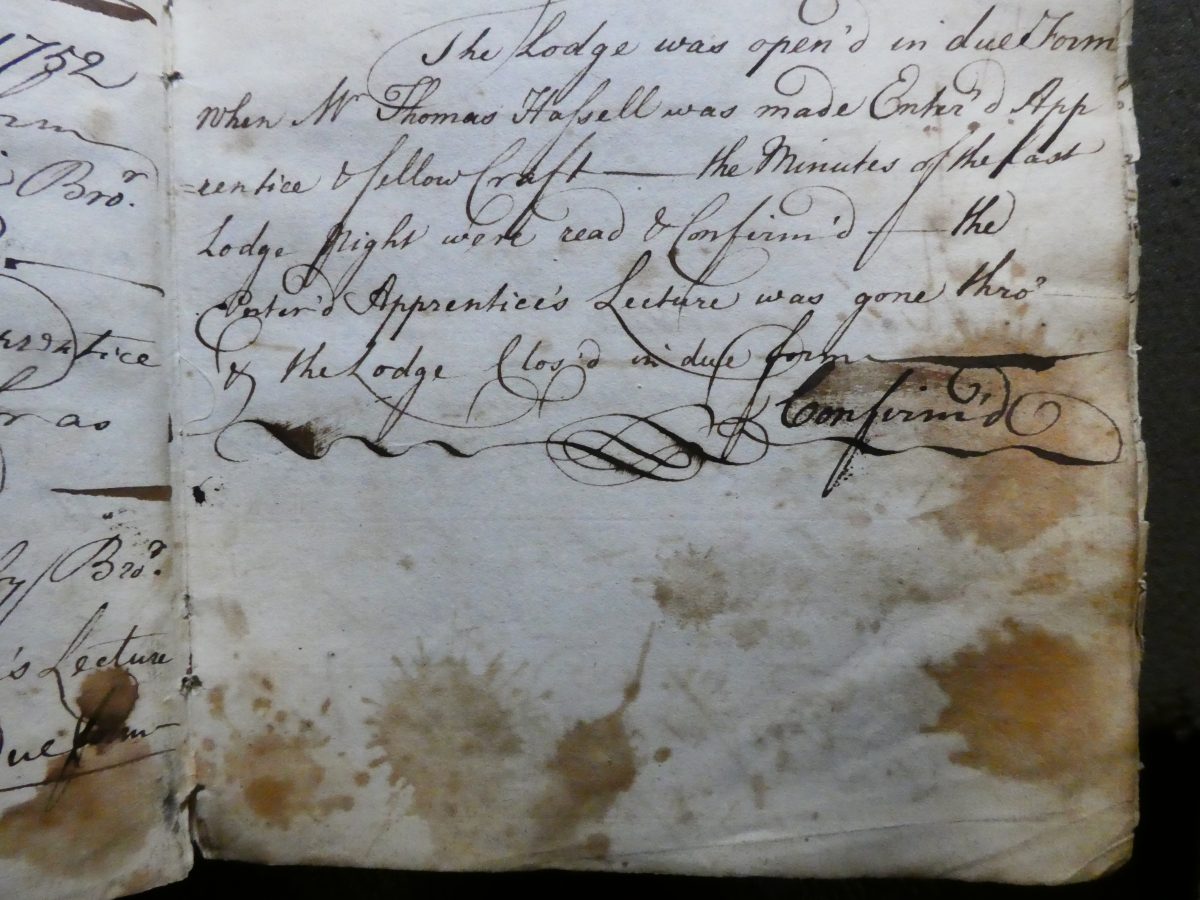 1752
Bror.
rentice
r as
Bror.
's Lecture
due form
The Lodge was open'd in due Form
when Mr Thomas Hassell was made Enter'd App
=rentice & fellow Craft — the Minutes of the last
Lodge Night were read & Confirm'd — the
Enter'd Apprentice's Lecture was gone thro'
& the Lodge Clos'd in due form
Confirm'd